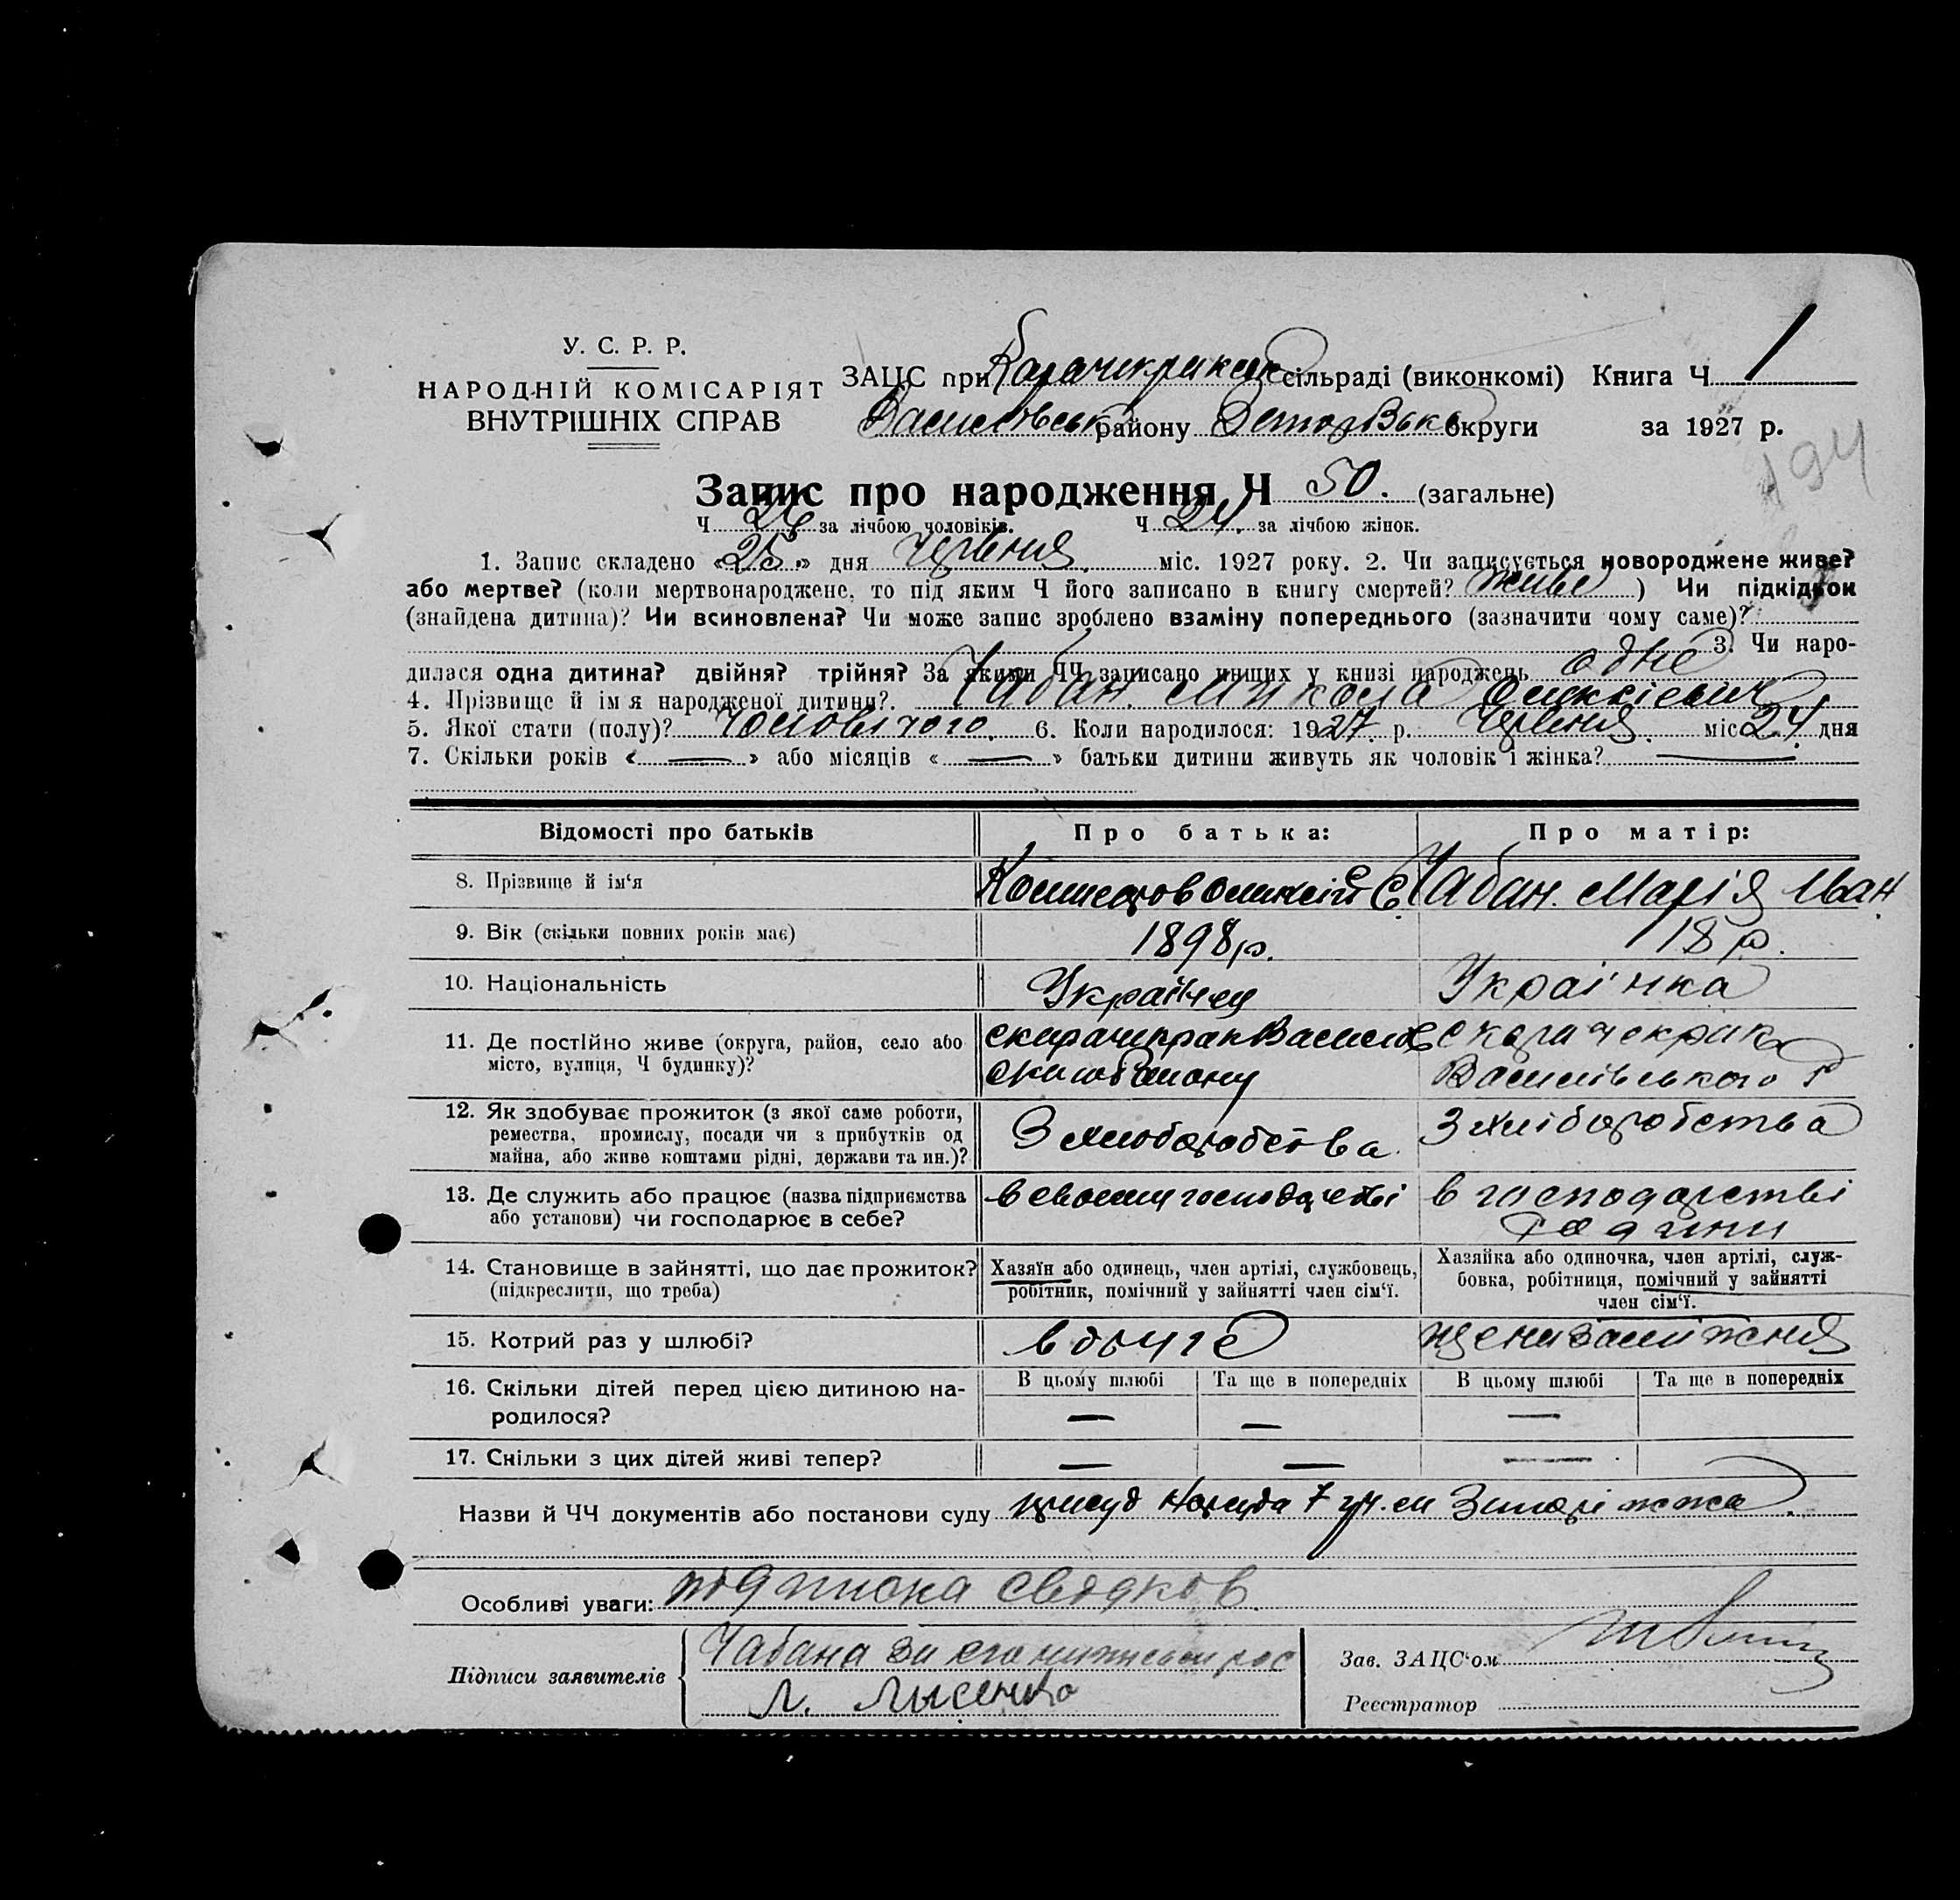 У. С. Р. Р.
НАРОДНІЙ КОМІСАРІЯТ
ВНУТРІШНІХ СПРАВ
ЗАЦС при Карачикракск сільраді (виконкомі) Книга Ч 1
Василівськ району округи за 1927 р.
194
Запис про народження Ч 50. (загальне)
Ч 26 за лічбою чоловіків. Ч 24. за лічбою жінок.
1. Запис складено «25» дня Червня міс. 1927 року. 2. Чи записується новороджене живе?
або мертве? (коли мертвонароджене, то під яким Ч його записано в книгу смертей? живе ) Чи підкідьок
(знайдена дитина)? Чи всиновлена? Чи може запис зроблено взаміну попереднього (зазначити чому саме)?
3. Чи наро-
дилася одна дитина? двійня? трійня? За якими ЧЧ записано инших у книзі народжень одне
4. Прізвище й ім я народженої дитини? Чабан. Микола Олексієвич
5. Якої стати (полу)? Чоловічого. 6. Коли народилося: 1927 р. Червня. міс 24 дня
7. Скільки років «—» або місяців «—» батьки дитини живуть як чоловік і жінка? —
Відомості про батьків Про батька: Про матір:
8. Прізвище й ім‘я Олексій Є Чабан. Марія Іван
9. Вік (скільки повних років має) 1898 р. 18 р.
10. Національність Українец Українка
11. Де постійно живе (округа, район, село або
місто, вулиця, Ч будинку)? с карачикрак Василів с карачекрак
ського Району Василівського Р
12. Як здобуває прожиток (з якої саме роботи,
ремества, промислу, посади чи з прибутків од
майна, або живе коштами рідні, держави та ин.)? З хліборобства З хліборобства
13. Де служить або працює (назва підприємства
або установи) чи господарює в себе? в своєму господарстві в господарстві
родини
14. Становище в зайнятті, що дає прожиток?
(підкреслити, що треба)
Хазяїн або одинець, член артілі, службовець,
робітник, помічний у зайнятті член сім‘ї.
Хазяйка або одиночка, член артілі, служ-
бовка, робітниця, помічний у зайнятті
член сім‘ї.
15. Котрий раз у шлюбі? вдруге ще незаміжня
16. Скільки дітей перед цією дитиною на-
родилося?
В цьому шлюбі Та ще в попередніх В цьому шлюбі Та ще в попередніх
— — —
17. Скільки з цих дітей живі тепер? — — —
Назви й ЧЧ документів або постанови суду присуд Нарсуда 7 уч. м Запоріжжа.
Особливі уваги: підписка свідков.
Підписи заявителів Чабана за его рос
Л. Лысенко
Зав. ЗАЦС‘ом
Реєстратор